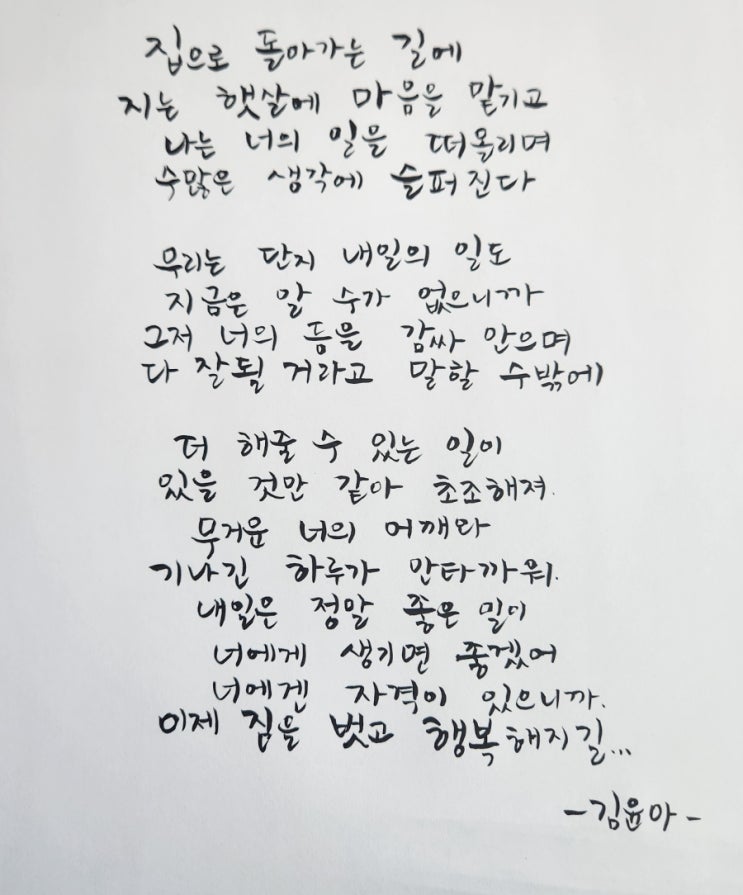 집으로 돌아가는 길에
지는 햇살에 마음을 맡기고
나는 너의 일을 떠올리며
수많은 생각에 슬퍼진다
우리는 단지 내일의 일도
지금은 알 수가 없으니까
그저 너의 등을 감싸 안으며
다 잘될 거라고 말할 수밖에
더 해줄 수 있는 일이
있을 것만 같아 초조해져.
무거운 너의 어깨와
기나긴 하루가 안타까워.
내일은 정말 좋은 일이
너에게 생기면 좋겠어
너에겐 자격이 있으니까.
이제 짐을 벗고 행복해지길...
-김윤아-